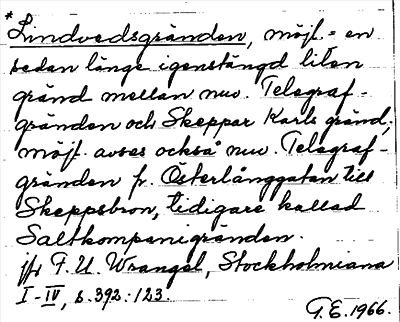 * Lindvedsgränden, möjl. = en
sedan länge igenstängd liten
gränd mellan nuv. Telegraf-
gränden och Skeppar Karls gränd;
möjl. avses också nuv. Telegraf-
gränden fr. Österlånggatan till
Skeppsbron, tidigare kallad
Saltkompanigränden.
jfr F. U. Wrangel, Stockholmiana
I-IV, s. 392: 123.
G.E. 1966.